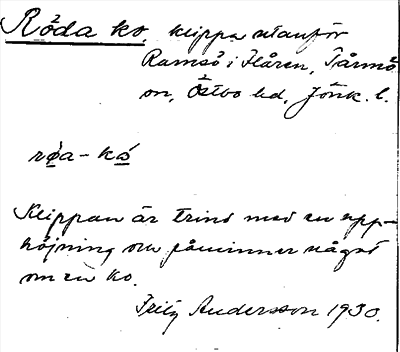 Röda ko, klippa utanför
Ramsö i Flåren, Tårnö
on, Östbo hd, Jönk. l.
röa-kó
Klippan är trind med en upp-
höjning och påminner något
om en ko.
Fritz Andersson 1930.